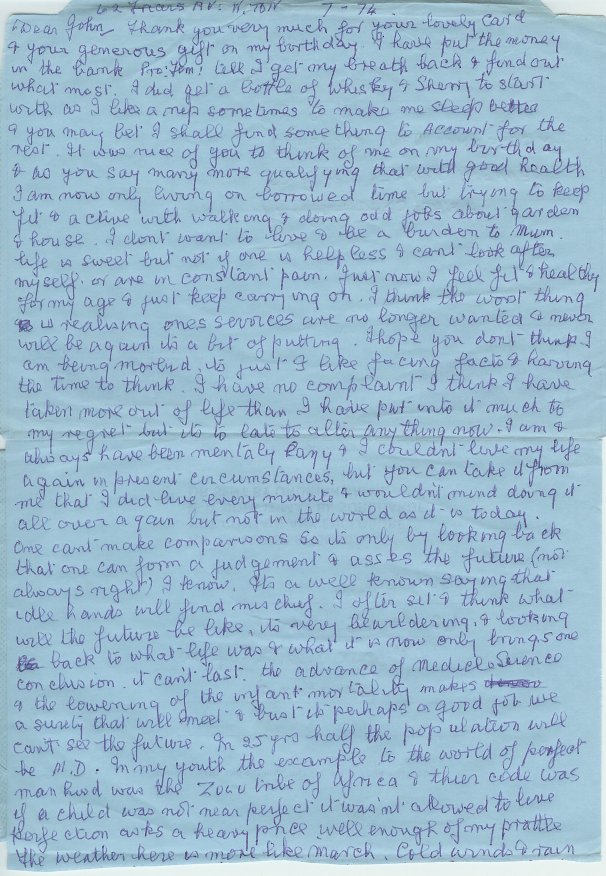 62 Friars AV. N. 7 - 74
Dear John, Thank you very much for your lovely card
& your generous gift on my birthday. I have put the money
in the bank Pro: Tem: till I get my breath back & find out
what most. I did get a bottle of whisky & Sherry to start
with as I like a nip sometimes to make me sleep better
& you may bet I shall find something to account for the
rest. It was nice of you to think of me on my birthday
& as you say many more qualifying that with good health
I am now only living on borrowed time but trying to keep
fit & active with walking & doing odd jobs about garden
& house. I dont want to live & be a burden to Mum.
life is sweet but not if one is helpless & cant look after
myself. or are in constant pain. Just now I feel fit & healthy
for my age & just keep carrying on. I think the worst thing
is realising ones services are no longer wanted & never
will be again its a bit of putting. I hope you dont think I
am being morbid, its just I like facing facts & having
the time to think. I have no complaint I think I have
taken more out of life than I have put into it much to
my regret but its to late to alter anything now. I am &
always have been mentaly lazy & I couldnt live my life
again in present circumstances, but you can take it from
me that I did live every minute & wouldnt mind doing it
all over again but not in the world as it is today.
One cant make comparisons so its only by looking back
that one can form a judgement & asses the future (not
always right) I know. Its a well known saying that
idle hands will find mischief. I often sit & think what
will the future be like, its very bewildering, & looking
back to what life was & what it is now only brings one
conclusion. it can't last. the advance of Medicle Science
& the lowering of the infant mortality makes
a surety that will meet & bust it perhaps a good job we
cant see the future. In 25 yrs half the population will
be M.D. In my youth the example to the world of perfect
manhud was the Zulu tribe of Africa & thier code was
if a child was not near perfect it was'nt allowed to live
perfection asks a heavy price well enough of my prattle
The weather here is more like march. Cold winds & rain